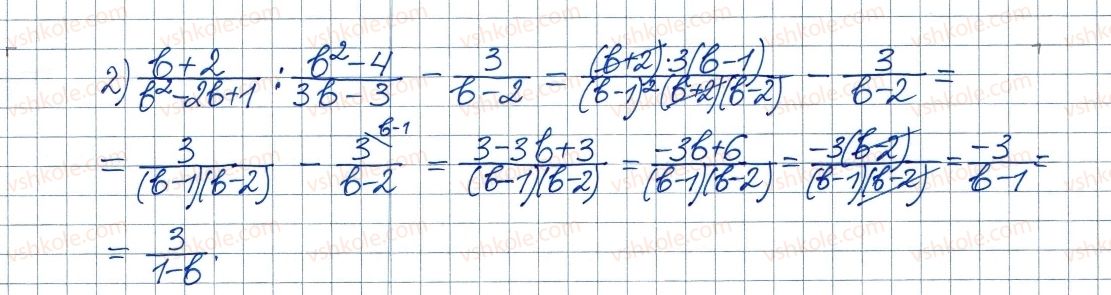 2) (b+2)/(b²-2b+1) : (b²-4)/(3b-3) - 3/(b-2) = ((b+2)·3(b-1))/((b-1)²·(b+2)(b-2)) - 3/(b-2) =
= 3/((b-1)(b-2)) - 3^(b-1)/(b-2) = (3-3b+3)/((b-1)(b-2)) = (-3b+6)/((b-1)(b-2)) = (-3(b-2))/((b-1)(b-2)) = (-3)/(b-1) =
= 3/(1-b).
vshkole.com